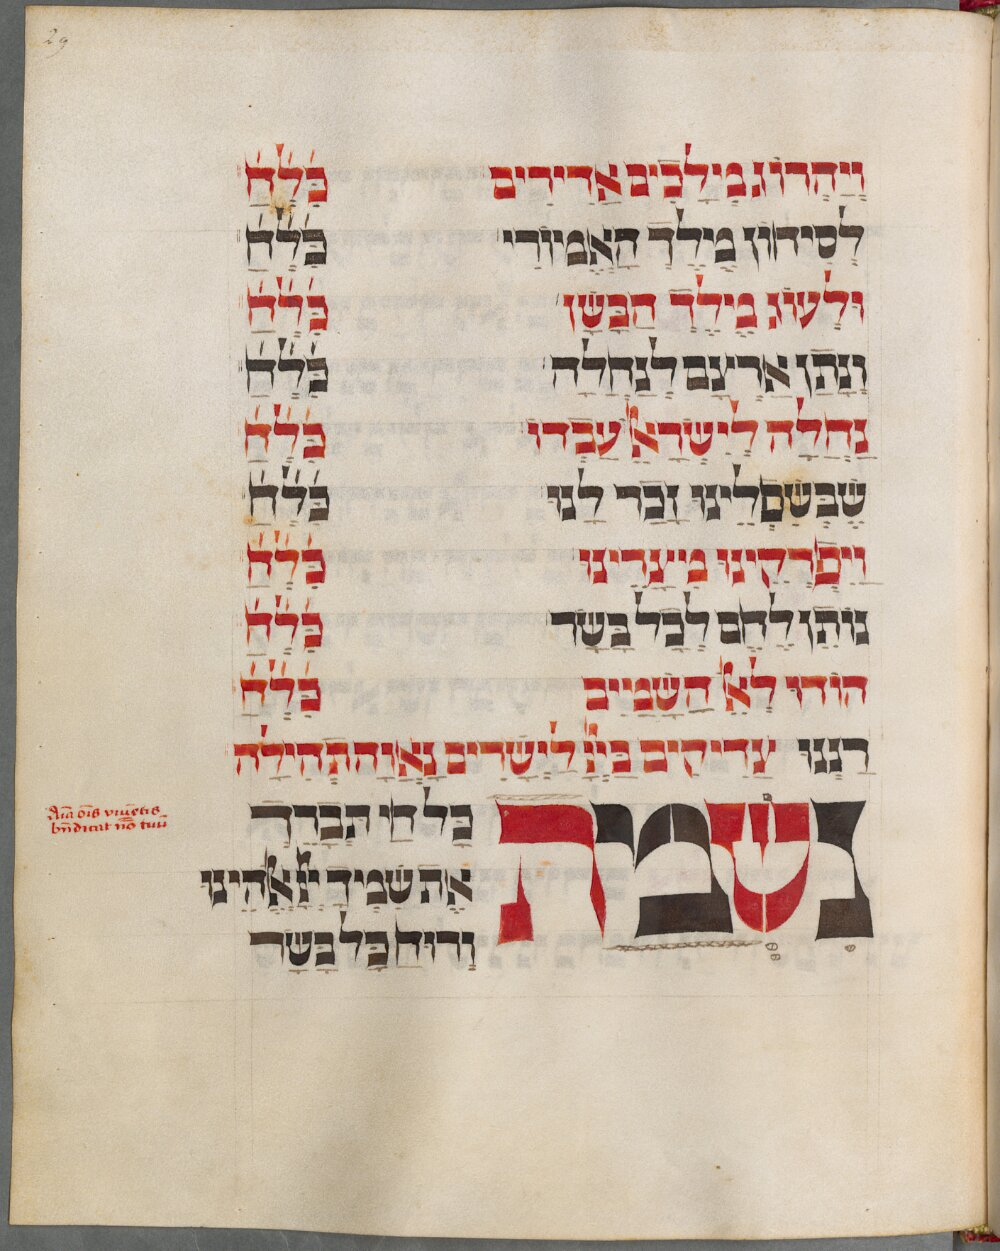 29
ויהרוג מלכים אדירים כ֗ל֗ח֗
לסיחון מלך האמורי כ֗ל֗ח֗
ולעוג מלך הבשן כ֗ל֗ח֗
ונתן ארצם לנחלה כ֗ל֗ח֗
נחלה לישרא׳ עבדו כ֗ל֗ח֗
שבשפלינו זכר לנו כ֗ל֗ח֗
ויפרקינו מיצרינו כ֗ל֗ח֗
נותן לחם לכל בשר כ֗ל֗ח֗
הודו לא׳ השמים כ֗ל֗ח֗
רננו צדיקים ביי׳ לישרים נאוה תהילה
נשמת כל חי תברך
את שמך יי׳ אלהינו
ורוח כל בשר
Aīa oīs viuētis
bn̄dicat nō tuū